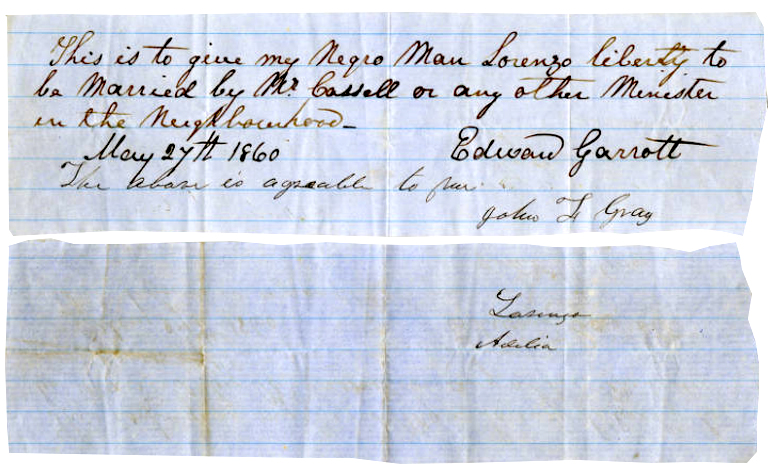 This is to give my Negro Man Lorenzo liberty to
be Married by Mr. Cassell or any other Menester
in the Neighbourhood_
May 27th 1860 Edward Garrott
The above is agreable to
John F Gray
Lorenzo
Adelia